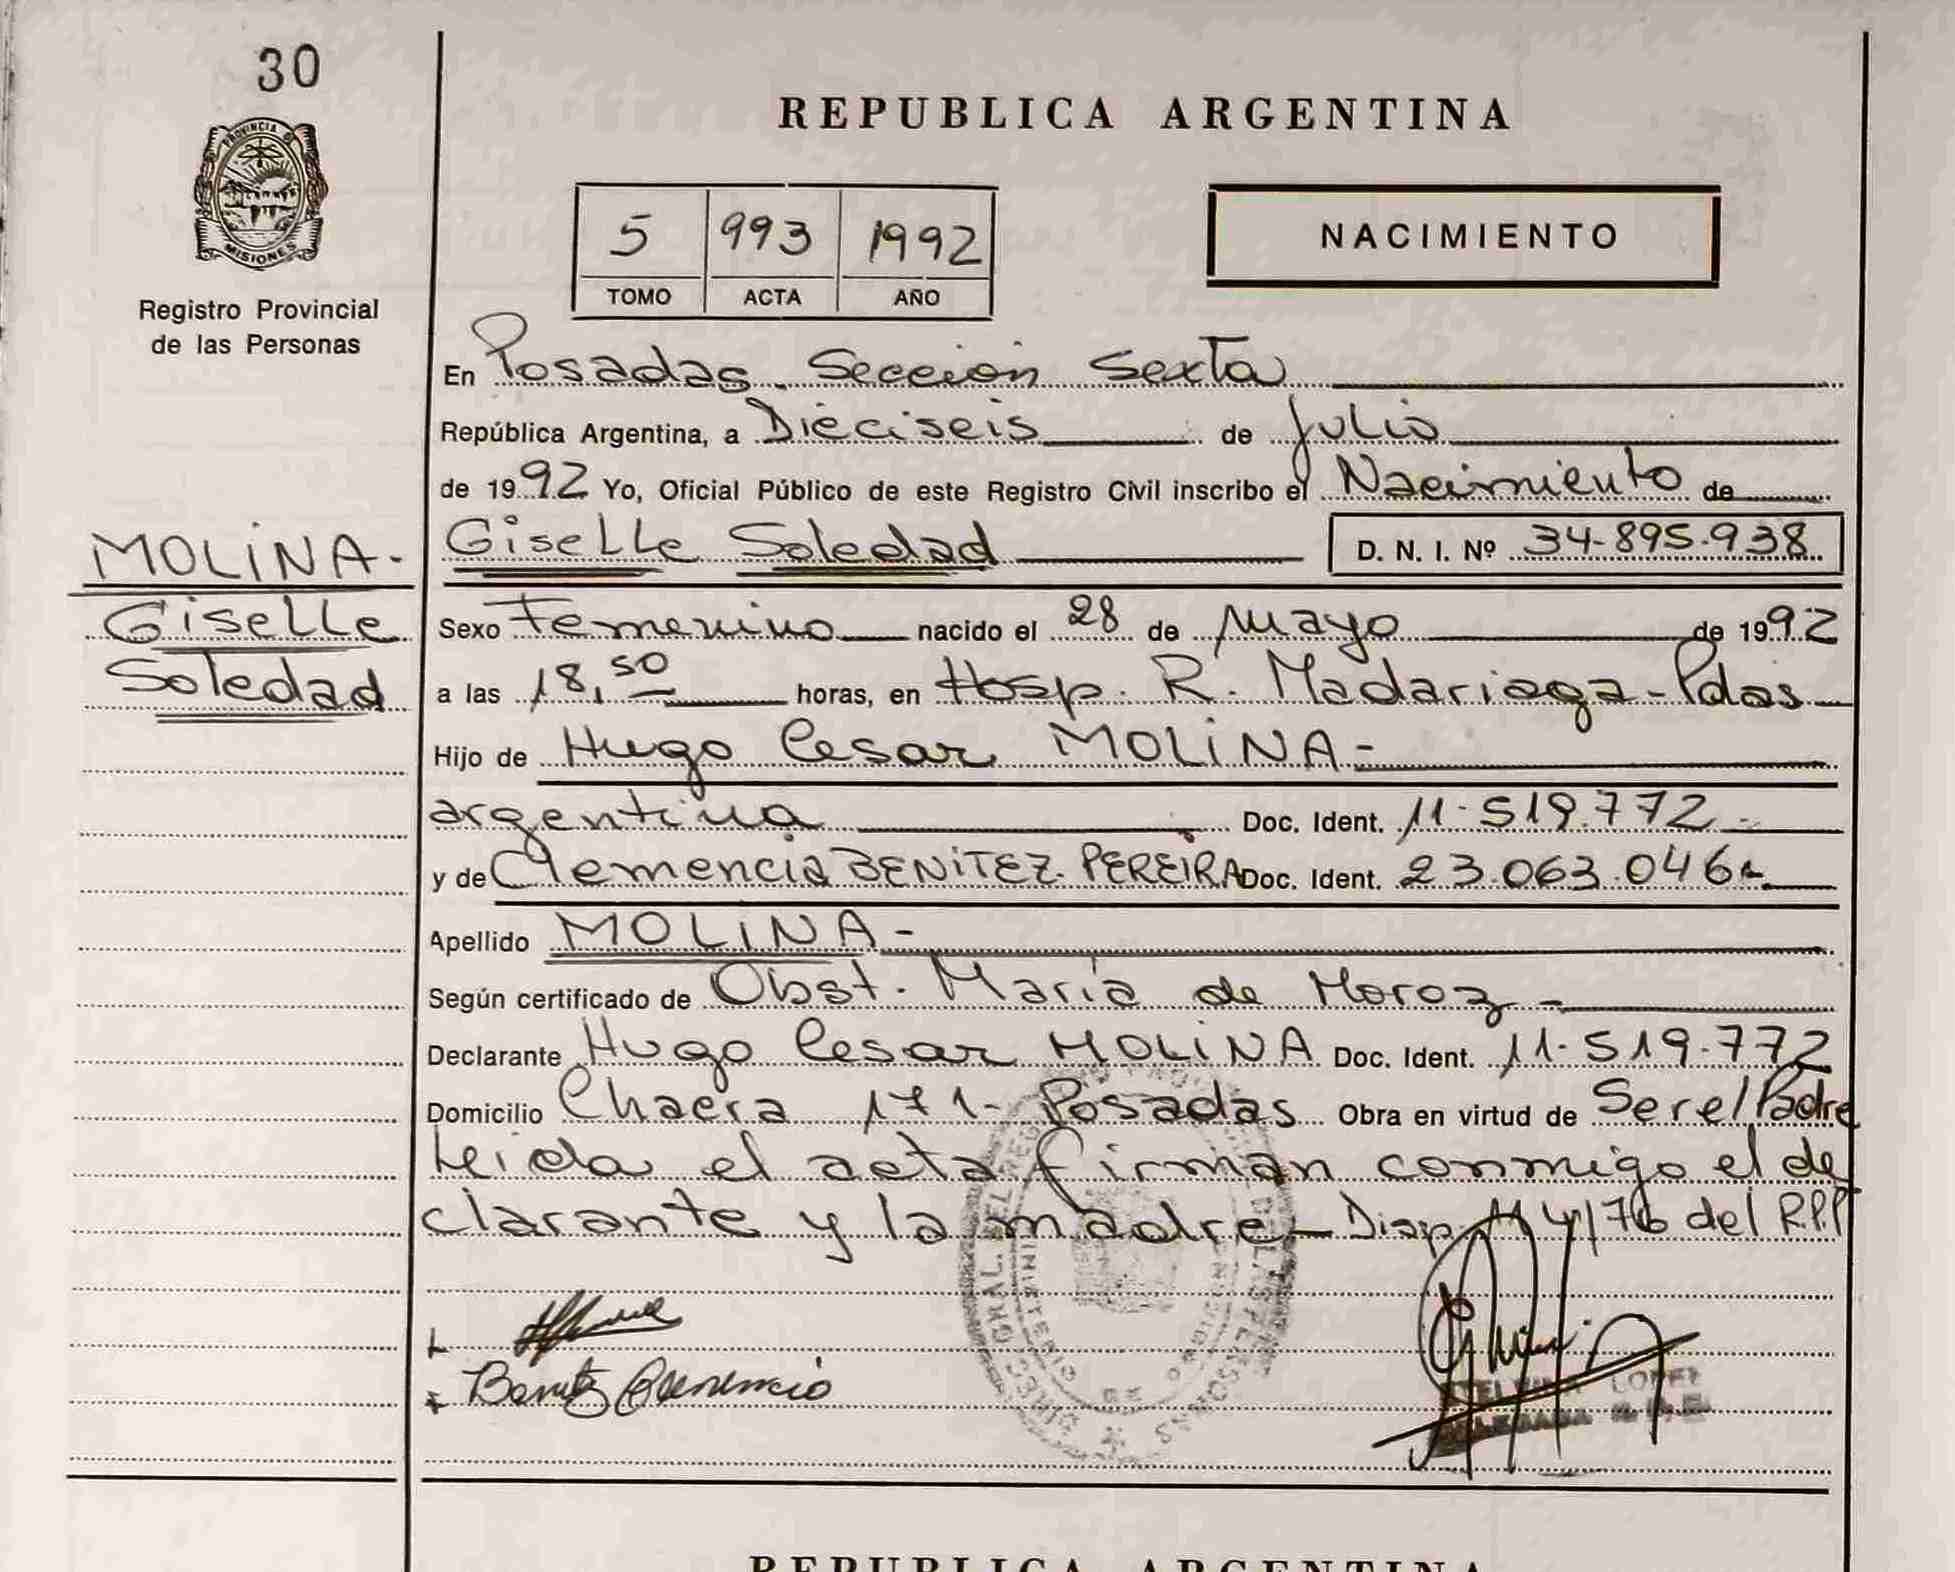 30
PROVINCIA DE
MISIONES
Registro Provincial
de las Personas
MOLINA-
Giselle
Soledad
REPUBLICA ARGENTINA
5 993 1992
TOMO ACTA AÑO
NACIMIENTO
En Posadas. Sección Sexta
República Argentina, a Dieciseis de Julio
de 1992 Yo, Oficial Público de este Registro Civil inscribo el Nacimiento de
Giselle Soledad D. N. I. Nº 34-895-938
Sexo Femenino nacido el 28 de Mayo de 1992
a las 18,50 horas, en Hosp. R. Madariaga-Pdas
Hijo de Hugo Cesar MOLINA-
argentina Doc. Ident. 11-519.772-
y de Clemencia BENITEZ PEREIRA Doc. Ident. 23.063.046-
Apellido MOLINA-
Según certificado de Obst. María de Moroz-
Declarante Hugo Cesar MOLINA Doc. Ident. 11-519.772
Domicilio Chacra 171- Posadas Obra en virtud de Ser el Padre
Leida el acta firman conmigo el de
clarante y la madre- Disp. 114/76 del R.P.P
Benitez Clemencia
LOPEZ
REPUBLICA ARGENTINA